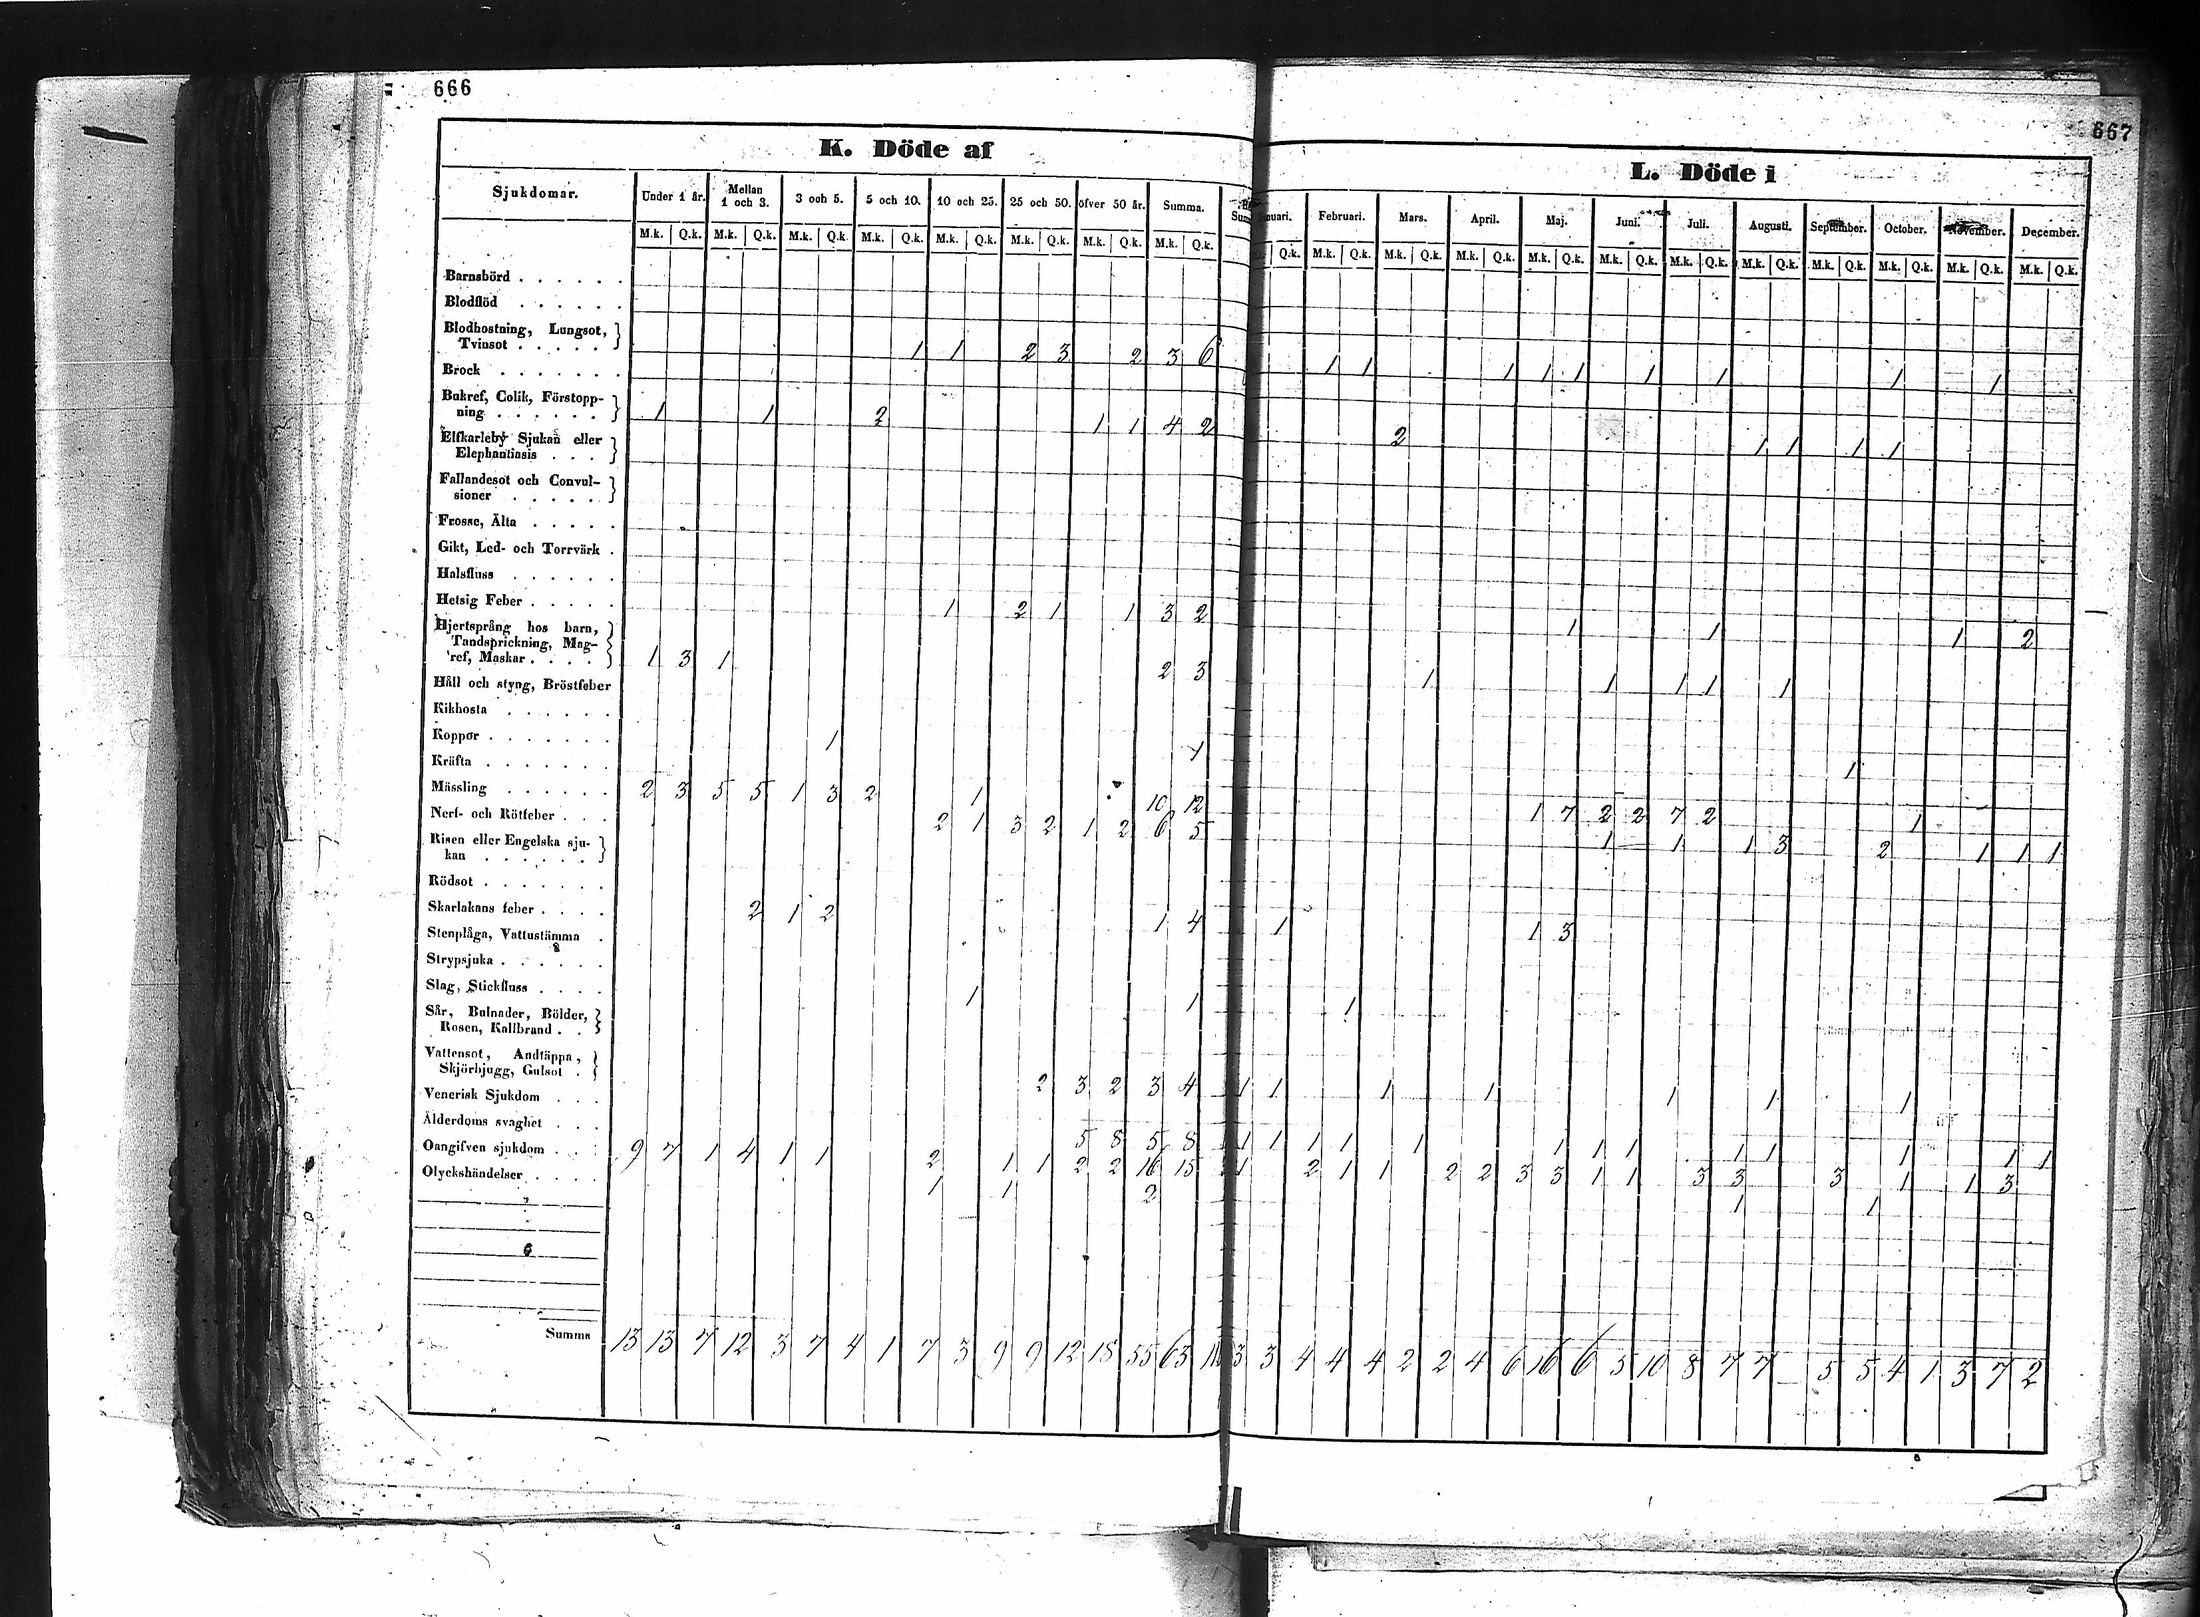 666
667
K. Döde af
L. Döde i
Sjukdomar. Under 1 år. Mellan 1 och 3. 3 och 5. 5 och 10. 10 och 25. 25 och 50. öfver 50 år. Summa.
Februari. Mars. April. Maj. Juni. Juli. Augusti. September. October. November. December.
M.k. Q.k. M.k. Q.k. M.k. Q.k. M.k. Q.k. M.k. Q.k. M.k. Q.k. M.k. Q.k. M.k. Q.k.
Q.k. M.k. Q.k. M.k. Q.k. M.k. Q.k. M.k. Q.k. M.k. Q.k. M.k. Q.k. M.k. Q.k. M.k. Q.k. M.k. Q.k. M.k. Q.k. M.k. Q.k.
Barnsbörd . . . . . .
Blodflöd . . . . . .
Blodhostning, Lungsot,
Tvinsot . . . . . 1 1 2 3 2 3 6 1 1 1 1 1 1 1 1 1
Brock . . . . . . .
Bukref, Colik, Förstopp-
ning . . . . . . 1 1 2 1 1 4 2 2 1 1 1 1
Elfkarleby Sjukan eller
Elephantiasis . . .
Fallandesot och Convul-
sioner . . . . .
Frosse, Älta . . . . .
Gikt, Led- och Torrvärk .
Halsfluss . . . . . .
Hetsig Feber . . . . . 1 2 1 1 3 2 1 1 1 2
Hjertsprång hos barn,
Tandsprickning, Mag-
ref, Maskar . . . . 1 3 1 2 3 1 1 1 1 1
Håll och styng, Bröstfeber
Kikhosta . . . . . .
Koppor . . . . . . . 1 1 1
Kräfta . . . . . . .
Mässling . . . . . . 2 3 5 5 1 3 2 1 10 12 1 7 2 2 7 2 1
Nerf- och Rötfeber . . . 2 1 3 2 1 2 6 5 1 1 1 3 2 1 1 1
Risen eller Engelska sju-
kan . . . . . .
Rödsot . . . . . . .
Skarlakans feber . . . . 2 1 2 1 4 1 1 3
Stenplåga, Vattustämma .
Strypsjuka . . . . . .
Slag, Stickfluss . . . . 1 1 1
Sår, Bulnader, Bölder,
Rosen, Kallbrand . .
Vattensot, Andtäppa,
Skjörbjugg, Gulsot . 2 3 2 3 4 1 1 1 1 1 1 1
Venerisk Sjukdom . . .
Ålderdoms svaghet . . . 5 8 5 8 1 1 1 1 1 1 1 1 1 1 1 1 1
Oangifven sjukdom . . . 9 7 1 4 1 1 2 1 1 2 2 16 15 1 2 1 1 2 2 3 3 1 1 3 3 3 1 1 3
Olyckshändelser . . . . 1 1 2 1 1
Summa 13 13 7 12 3 7 4 1 7 3 9 9 12 18 55 63 3 3 4 4 4 2 2 4 6 16 6 5 10 8 7 7 5 5 4 1 3 7 2